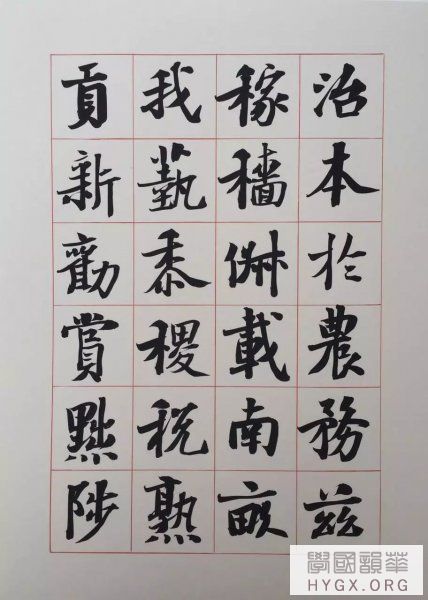 治本於農務茲
稼穡俶載南畝
我藝黍稷稅熟
貢新勸賞黜陟
學國韻華
HYGX.ORG